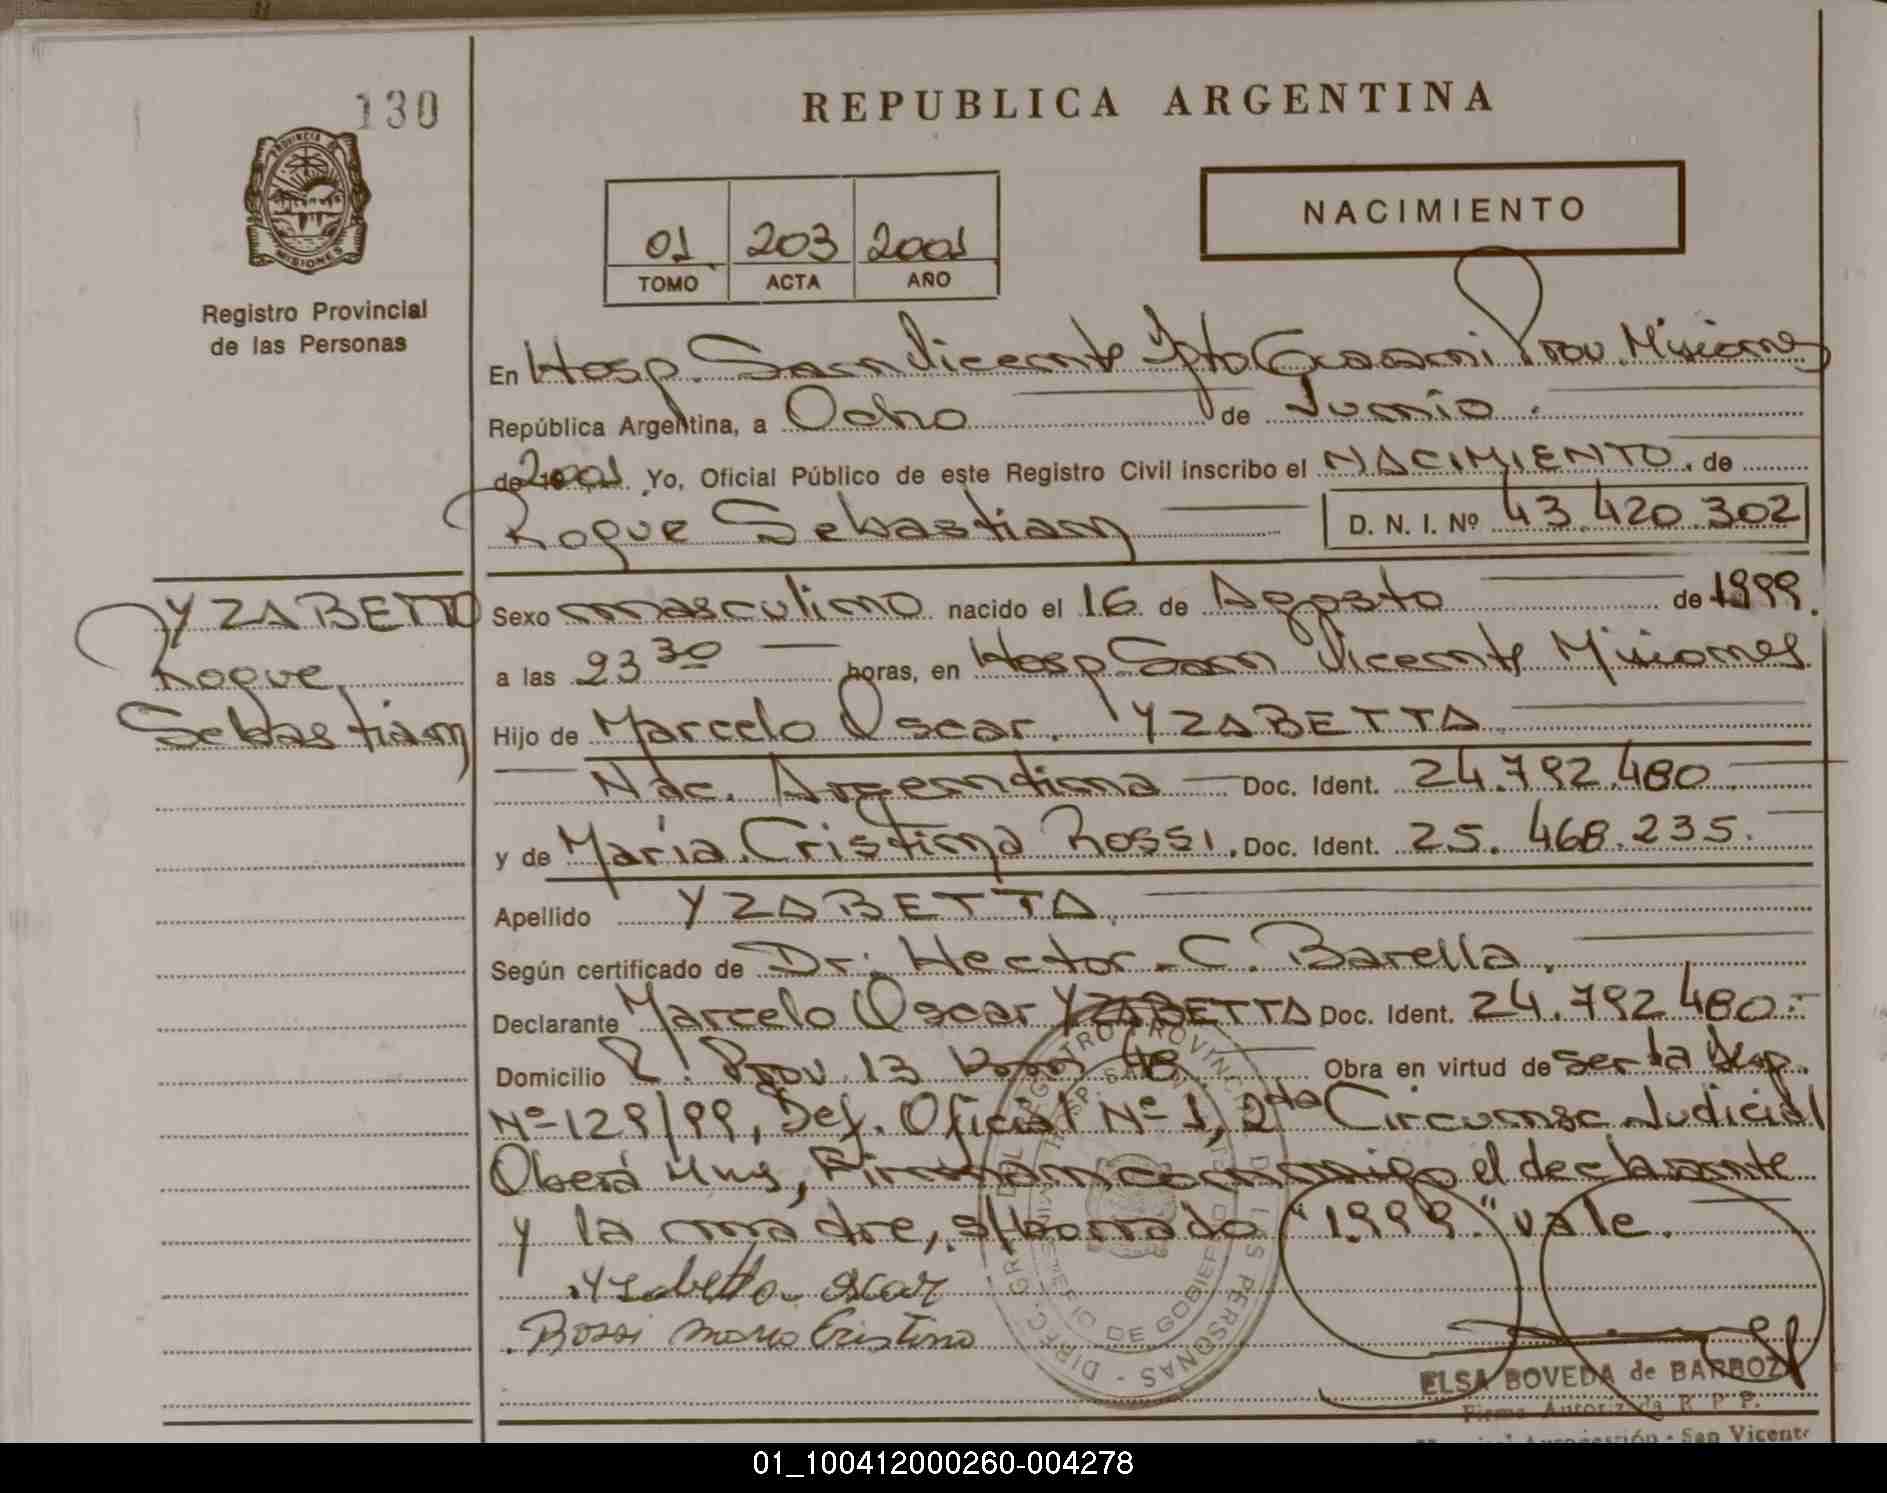 130
REPUBLICA ARGENTINA
PROVINCIA DE
MISIONES
Registro Provincial
de las Personas
01 203 2001
TOMO ACTA AÑO
NACIMIENTO
En Hosp. San Vicente Dpto Guarani Prov. Misiones
República Argentina, a Ocho de Junio.
de 2001. Yo, Oficial Público de este Registro Civil inscribo el NACIMIENTO. de
Roque Sebastian D. N. I. Nº 43.420.302
YZABETTA
Roque
Sebastian
Sexo masculino nacido el 16 de Agosto de 1999.
a las 23 30 horas, en Hosp San Vicente Misiones
Hijo de Marcelo Oscar. YZABETTA
Nac. Argentina Doc. Ident. 24.792.480
y de María Cristina Rossi. Doc. Ident. 25.468.235.
Apellido YZABETTA.
Según certificado de Dr. Hector C. Barella.
Declarante Marcelo Oscar YZABETTA Doc. Ident. 24.792.480.-
Domicilio R. Prov. 13 Km 48 Obra en virtud de ser la Disp.
Nº 129/99, Def. Oficial Nº 1, 2da Circunsc Judicial
Oberá Mnes, Firman conmigo el declarante
y la madre, s/borrado "1.999." vale.
Yzabetta Oscar
Rossi Maria Cristina
ELSA BOVEDA de BARBOZA
Firma Autorizada R P P.
San Vicente
01_100412000260-004278